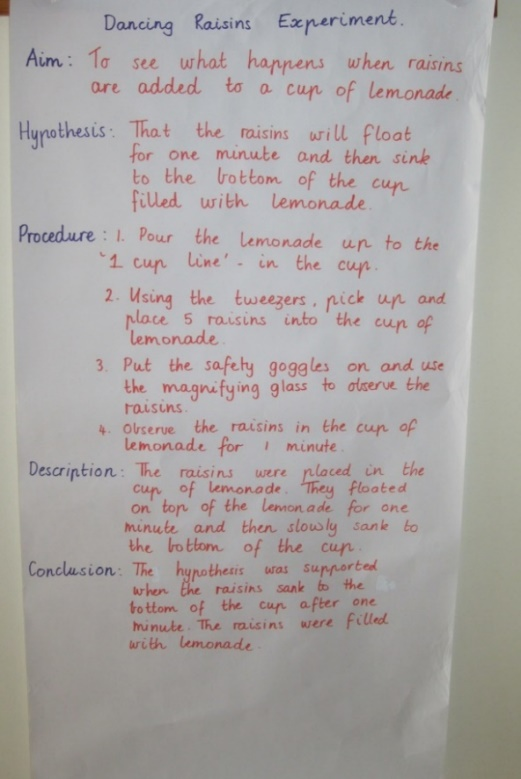 Dancing Raisins Experiment.
Aim: To see what happens when raisins
are added to a cup of lemonade.
Hypothesis: That the raisins will float
for one minute and then sink
to the bottom of the cup
filled with lemonade.
Procedure: 1. Pour the lemonade up to the
'1 cup line' - in the cup.
2. Using the tweezers, pick up and
place 5 raisins into the cup of
lemonade.
3. Put the safety goggles on and use
the magnifying glass to observe the
raisins.
4. Observe the raisins in the cup of
lemonade for 1 minute.
Description: The raisins were placed in the
cup of lemonade. They floated
on top of the lemonade for one
minute and then slowly sank to
the bottom of the cup.
Conclusion: The hypothesis was supported
when the raisins sank to the
bottom of the cup after one
minute. The raisins were filled
with lemonade.